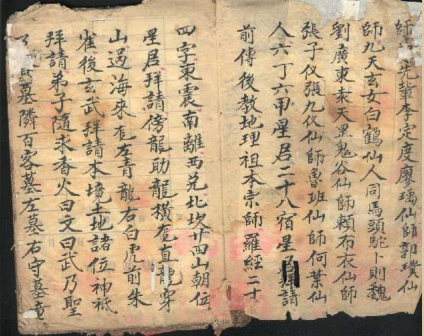 師 先輩李定度廖瑀仙師郭璞仙
師九天玄女白鶴仙人同馬頭陀卜則魏
劉廣東袁天罡鬼谷仙師賴布衣仙師
張子仪張九仪仙師魯班仙師何葉仙
人六丁六甲星君二十八宿星君拜請
前傳後教地理祖本宗師羅經二十
四字東震南離西兌北坎廿四山朝位
星君拜請傍龍助龍橫龍直龍穿
山過海來龍左青龍右白虎前朱
雀後玄武拜請本境土地諸位神祇
拜請弟子隨求香火曰文曰武乃聖
墓隣百客墓左墓右守墓